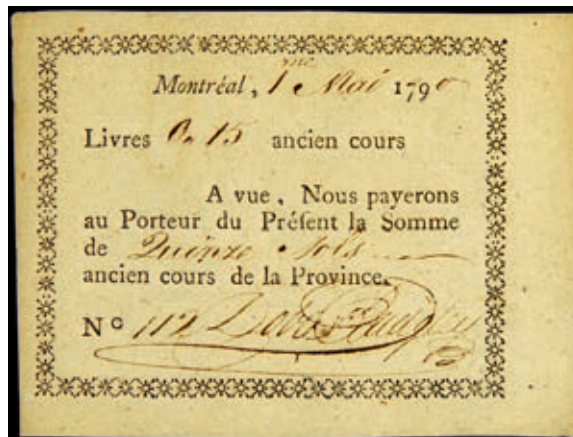 Montréal, 1me Mai 1790
Livres 0. 15 ancien cours
A vue, Nous payerons
au Porteur du Préſent la Somme
de Quinze Sols
ancien cours de la Province.
No 112